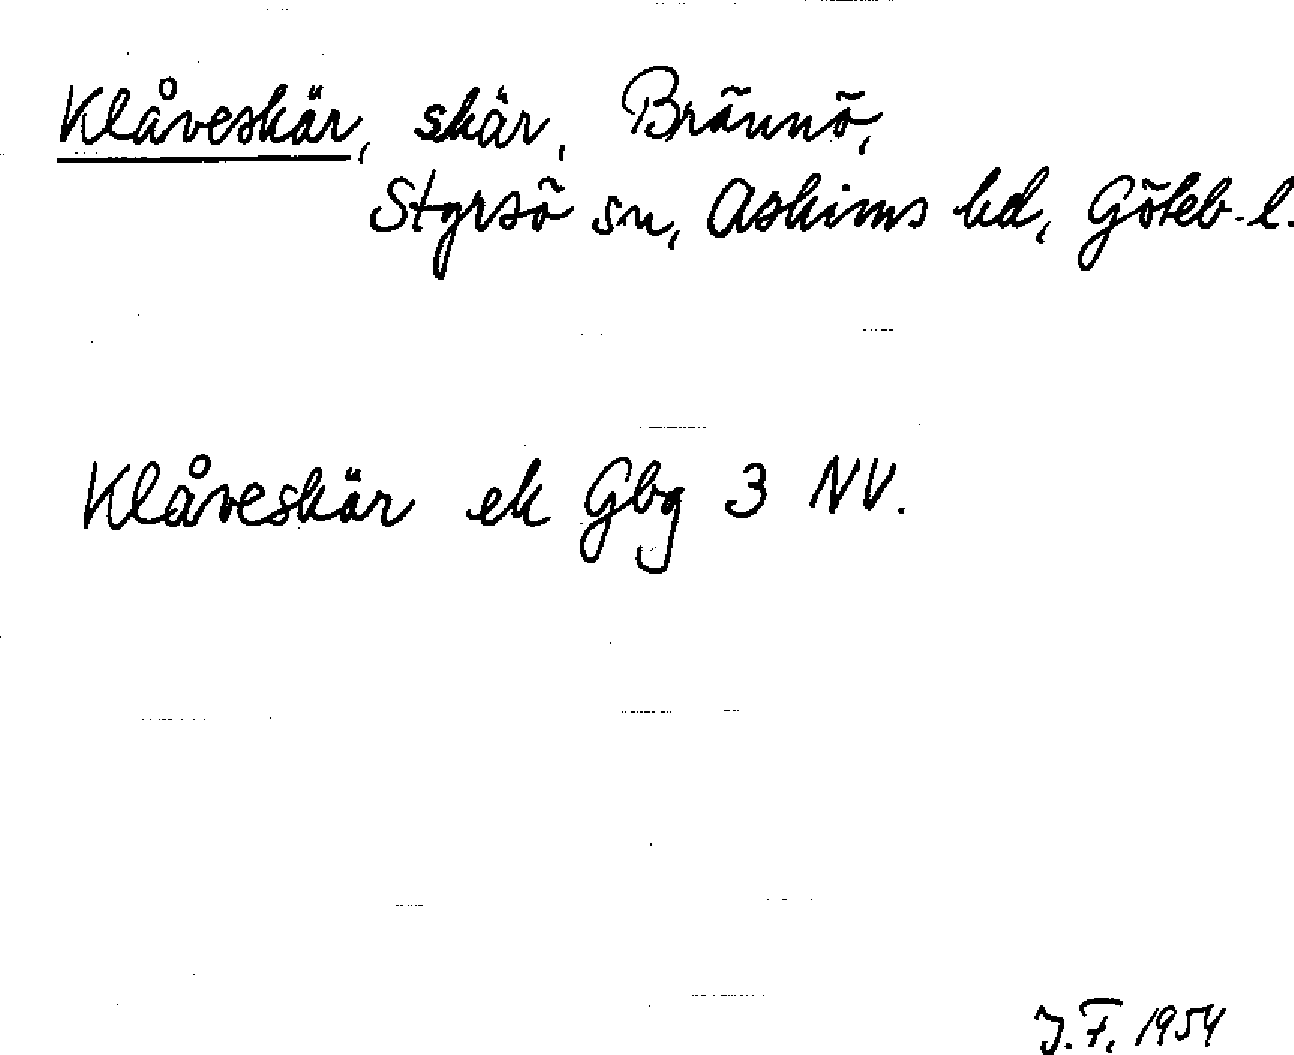 Klåveskär, skär, Brännö,
Styrsö sn, Askims hd, Göteb. l.
Klåveskär ek Gbg 3 NV.
J.F. 1954